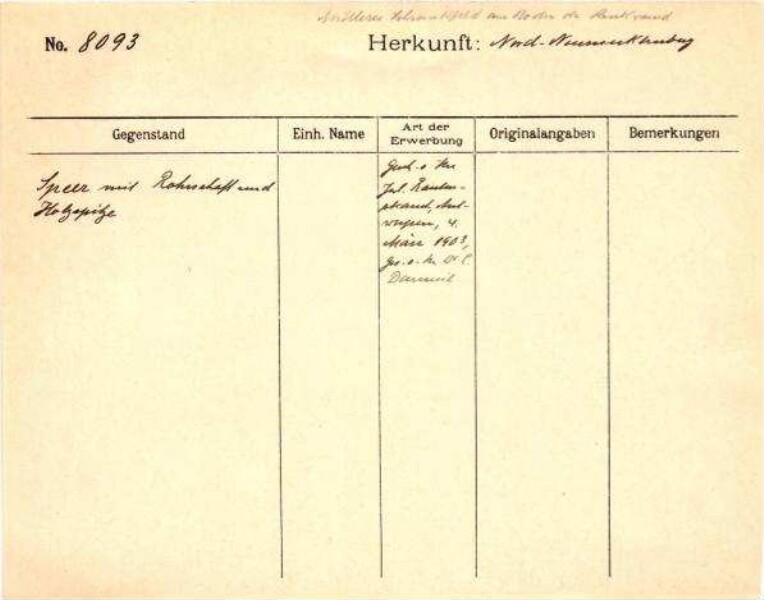 Mittleres am Boden
No. 8093 Herkunft: Nord-Neumecklenburg
Gegenstand
Einh. Name
Art der
Erwerbung
Originalangaben
Bemerkungen
Speer mit Rohrschaft und
Holzspitze
Jul. Rauten-
strauch, Ant-
werpen, 4.
März 1903,